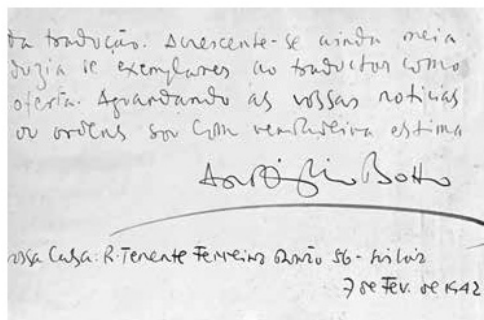 ta traducção. Acrescente-se ainda meia
duzia de exemplares ao traductor como
oferta. Aguardando as vossas noticias
ou ordens sou com verdadeira estima
António Botto
vossa Casa: R. Tenente Ferreira Durão 56 - Lisboa
7 de Fev. de 1942